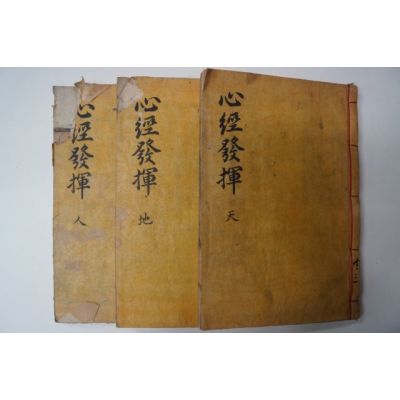 心經發揮
天
心經發揮
地
心經發揮
人
共三